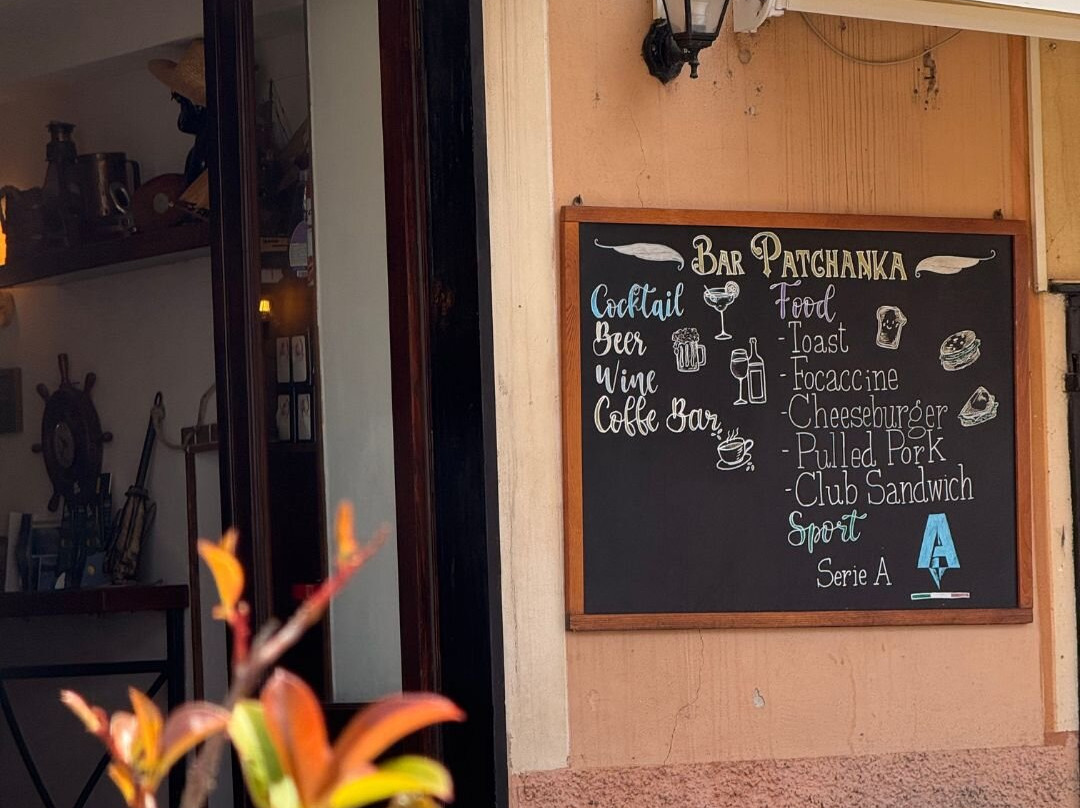 Bar Patchanka
Cocktail
Beer
Wine
Coffe Bar
Food
- Toast
- Focaccine
- Cheeseburger
- Pulled Pork
- Club Sandwich
Sport
Serie A
A